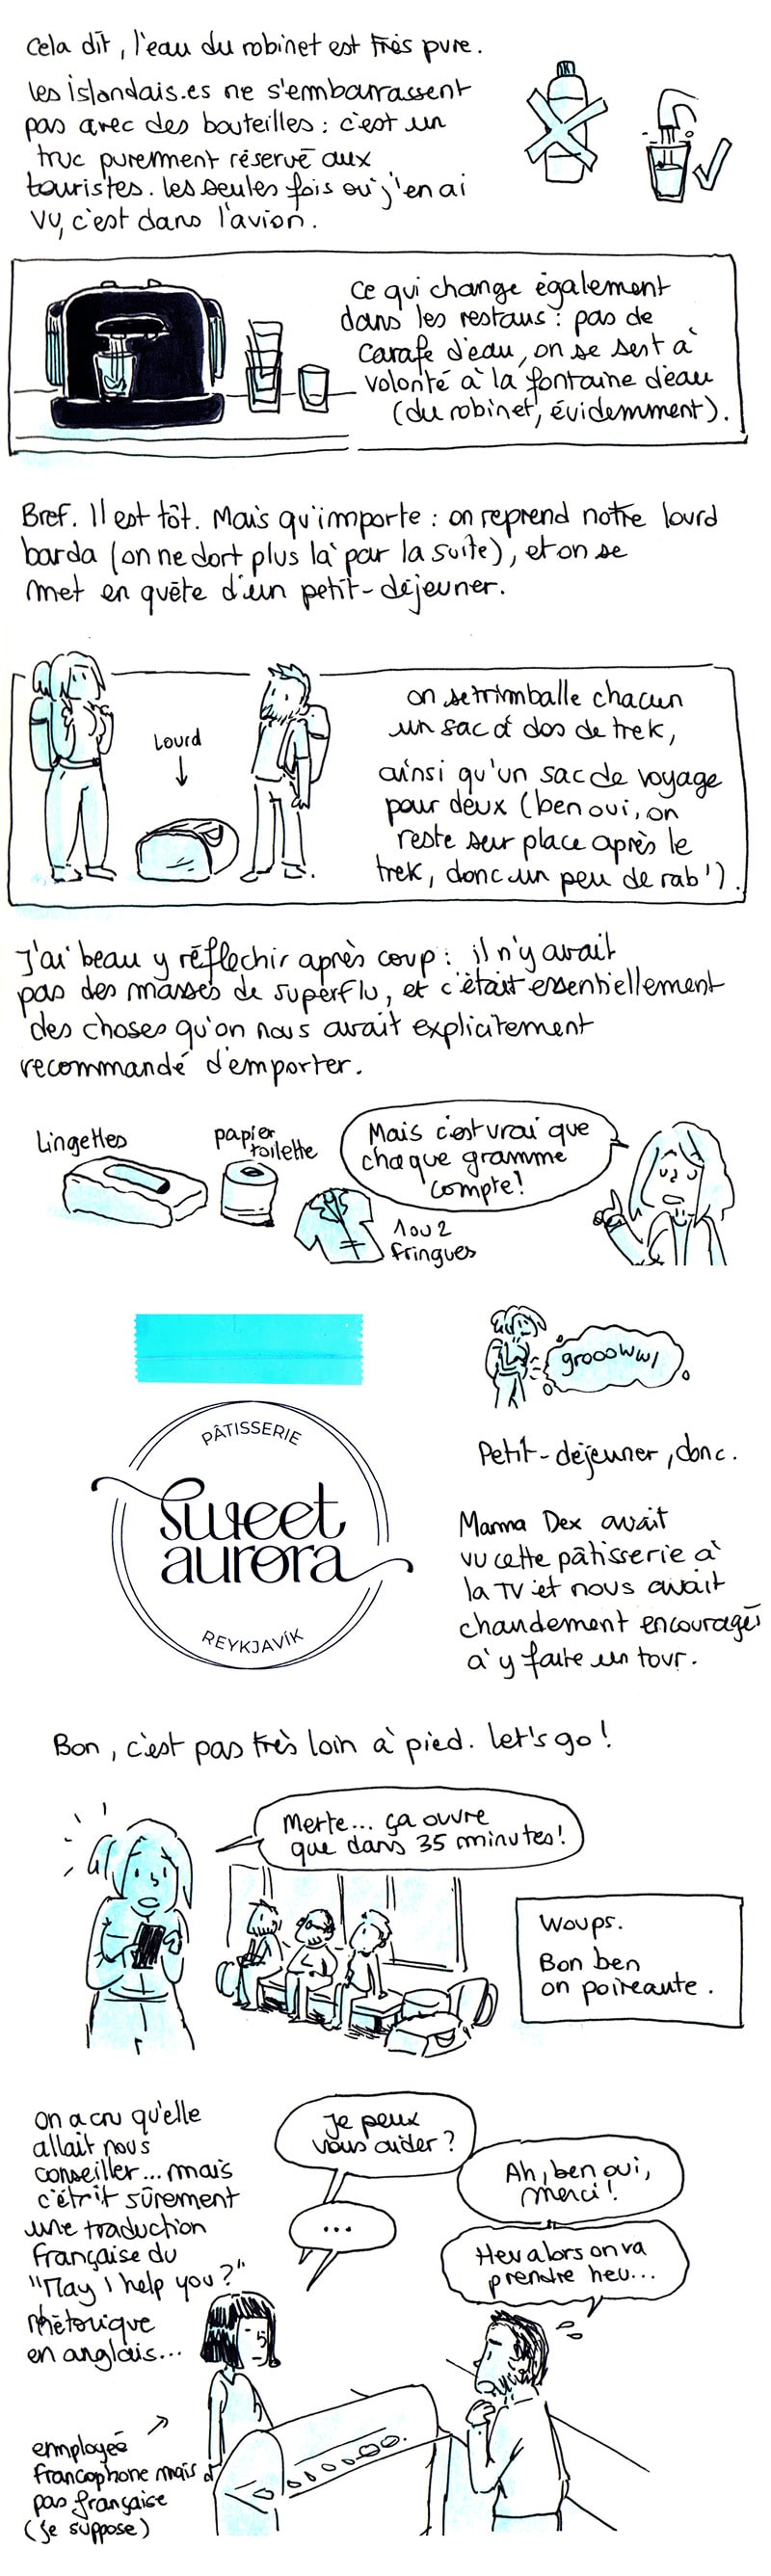 Cela dit, l'eau du robinet est très pure.
Les islandais.es ne s'embarrassent
pas avec des bouteilles : c'est un
truc purement réservé aux
touristes. Les seules fois où j'en ai
vu, c'est dans l'avion.
Ce qui change également
dans les restaus : pas de
carafe d'eau, on se sert à
volonté à la fontaine d'eau
(du robinet, évidemment).
Bref. Il est tôt. Mais qu'importe : on reprend notre lourd
barda (on ne dort plus là par la suite), et on se
met en quête d'un petit-déjeuner.
Lourd
on se trimballe chacun
un sac à dos de trek,
ainsi qu'un sac de voyage
pour deux (ben oui, on
reste sur place après le
trek, donc un peu de rab').
J'ai beau y réfléchir après coup : il n'y avait
pas des masses de superflu, et c'était essentiellement
des choses qu'on nous avait explicitement
recommandé d'emporter.
Lingettes
papier
toilette
1 ou 2
fringues
Mais c'est vrai que
chaque gramme
compte!
grooowww
PÂTISSERIE
sweet
aurora
REYKJAVÍK
Petit-déjeuner, donc.
Manma Dex avait
vu cette pâtisserie à
la TV et nous avait
chaudement encouragés
à y faire un tour.
Bon, c'est pas très loin à pied. Let's go!
Merte... ça ouvre
que dans 35 minutes!
Woups.
Bon ben
on poireaute.
On a cru qu'elle
allait nous
conseiller... mais
c'étrit sûrement
une traduction
française du
"May I help you?"
rhétorique
en anglais...
Je peux
vous aider ?
...
Ah, ben oui,
merci!
Heu alors on va
prendre heu...
employée
francophone mais
pas française
(je suppose)